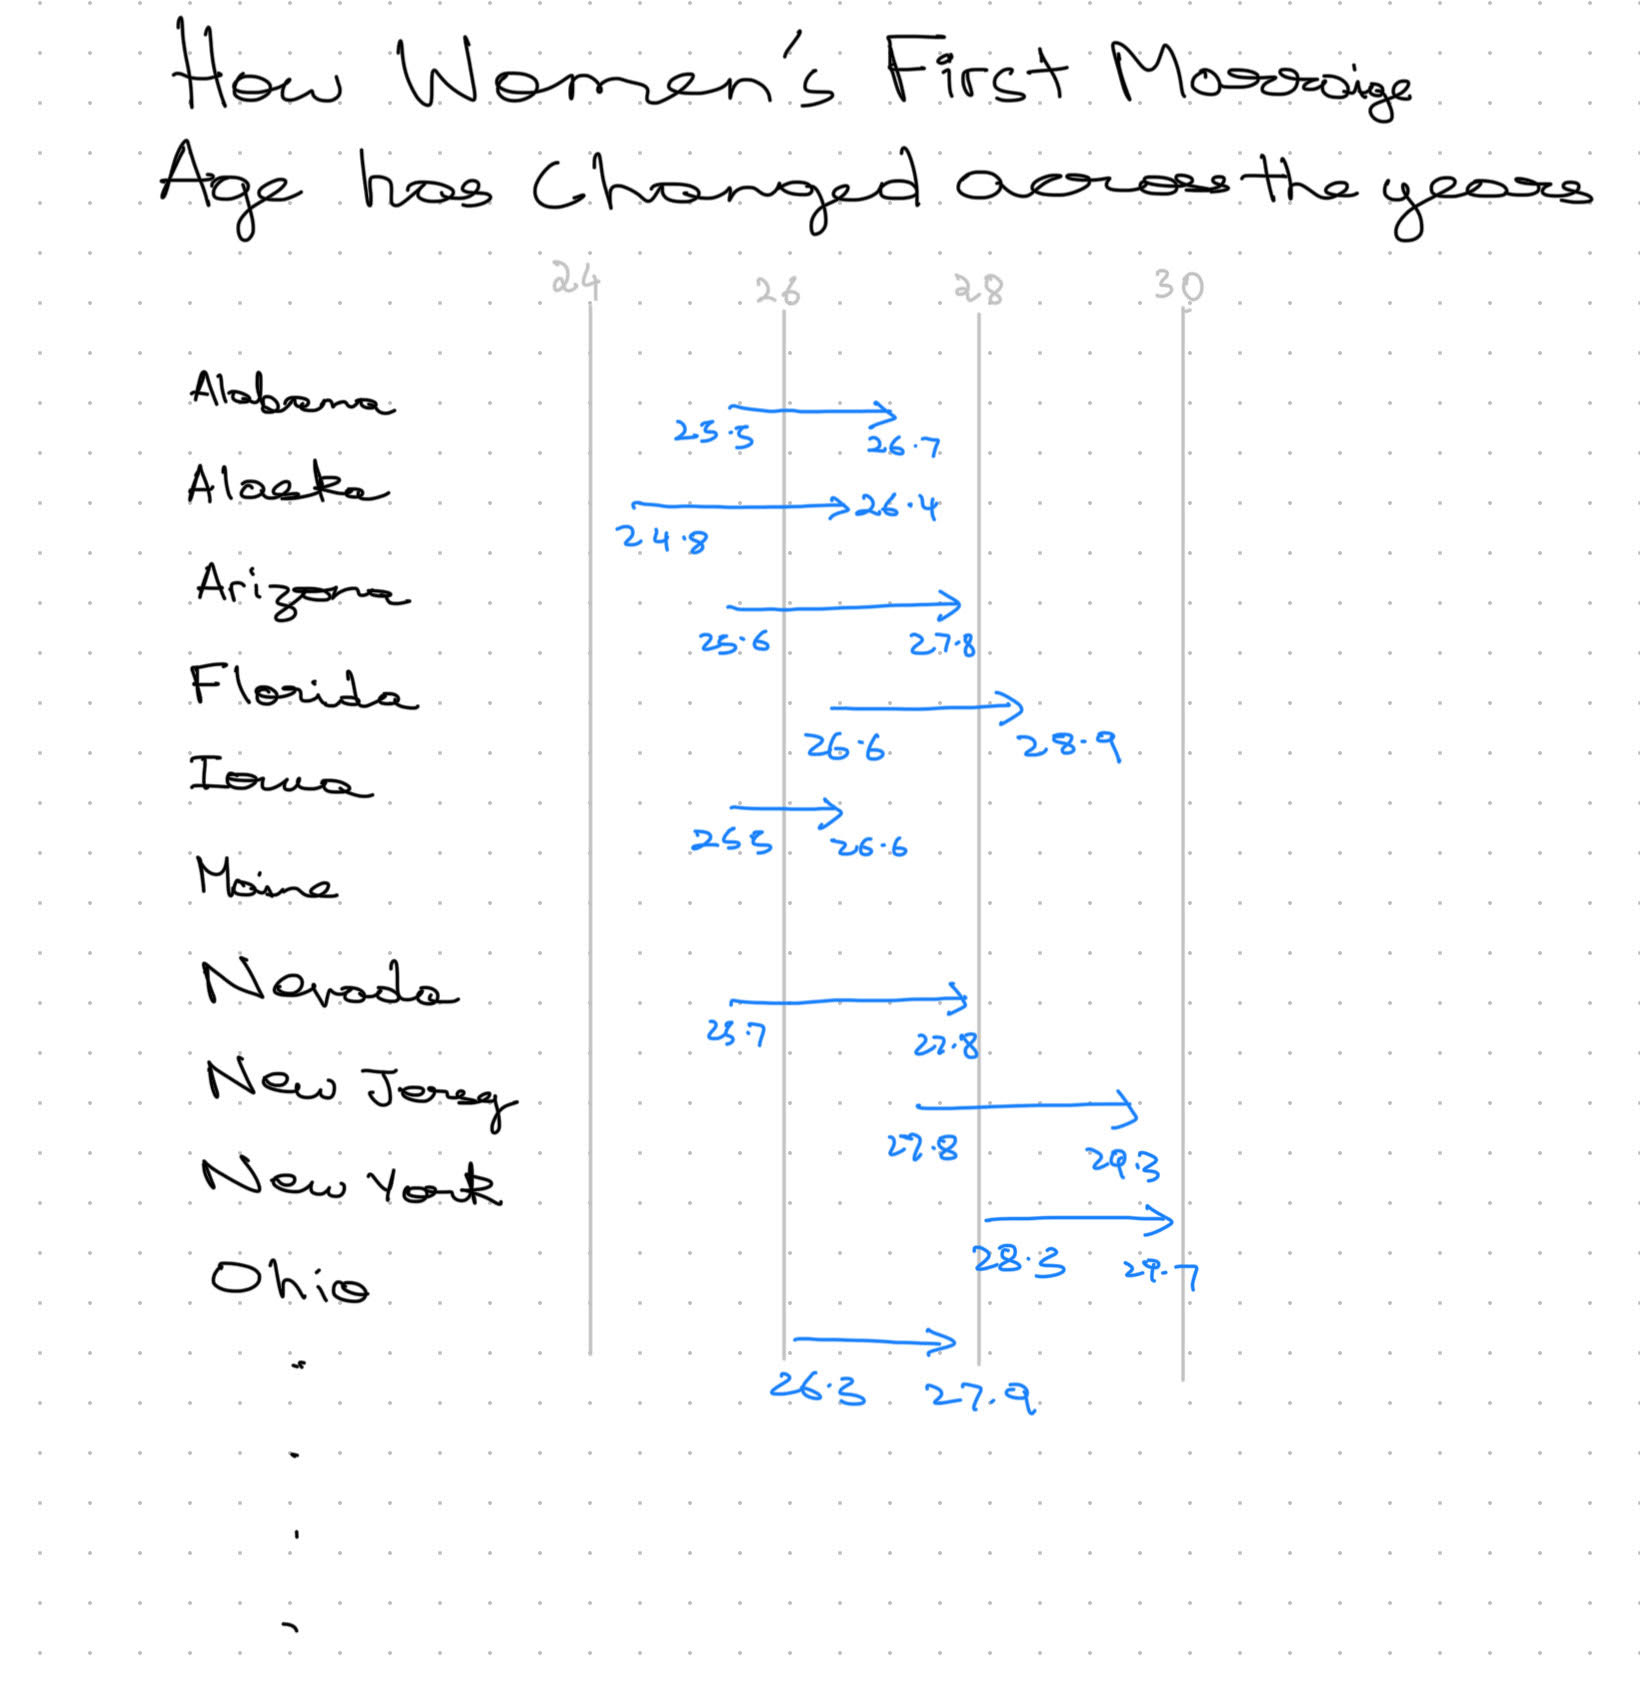 How Women's First Marraige
Age has Changed across the years
24 26 28 30
Alabama
25.5 26.7
Alaska
24.8 26.4
Arizona
25.6 27.8
Florida
26.6 28.9
Iowa
25.5 26.6
Maine
Nevada
25.7 27.8
New Jersey
27.8 29.3
New York
28.3 29.7
Ohio
26.3 27.9